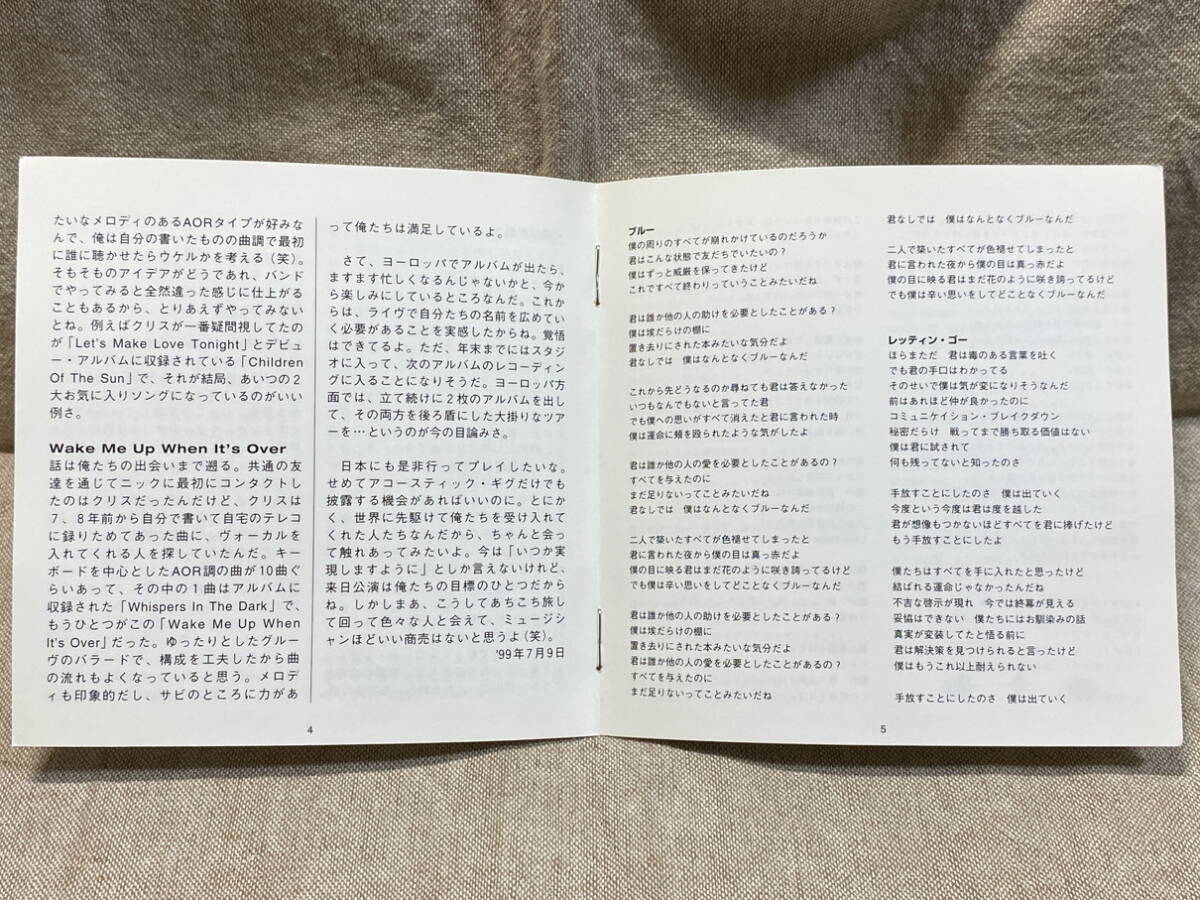 たいなメロディのあるAORタイプが好みな
んで、俺は自分の書いたものの曲調で最初
に誰に聴かせたらウケルかを考える(笑)。
そもそものアイデアがどうであれ、バンド
でやってみると全然違った感じに仕上がる
こともあるから、とりあえずやってみない
とね。例えばクリスが一番疑問視してたの
が「Let's Make Love Tonight」とデビュ
ー・アルバムに収録されている「Children
Of The Sun」で、それが結局、あいつの2
大お気に入りソングになっているのがいい
例さ。
Wake Me Up When It's Over
話は俺たちの出会いまで遡る。共通の友
達を通じてニックに最初にコンタクトし
たのはクリスだったんだけど、クリスは
7、8年前から自分で書いて自宅のテレコ
に録りためてあった曲に、ヴォーカルを
入れてくれる人を探していたんだ。キー
ボードを中心としたAOR調の曲が10曲ぐ
らいあって、その中の1曲はアルバムに
収録された「Whispers In The Dark」で、
もうひとつがこの「Wake Me Up When
It's Over」だった。ゆったりとしたグルー
ヴのバラードで、構成を工夫したから曲
の流れもよくなっていると思う。メロデ
ィも印象的だし、サビのところに力があ
って俺たちは満足しているよ。
さて、ヨーロッパでアルバムが出たら、
ますます忙しくなるんじゃないかと、今か
ら楽しみにしているところなんだ。これか
らは、ライヴで自分たちの名前を広めてい
く必要があることを実感したからね。覚悟
はできてるよ。ただ、年末までにはスタジ
オに入って、次のアルバムのレコーディン
グに入ることになりそうだ。ヨーロッパ方
面では、立て続けに2枚のアルバムを出し
て、その両方を後ろ盾にした大掛りなツア
ーを…というのが今の目論みさ。
日本にも是非行ってプレイしたいな。
せめてアコースティック・ギグだけでも
披露する機会があればいいのに。とにか
く、世界に先駆けて俺たちを受け入れて
くれた人たちなんだから、ちゃんと会っ
て触れあってみたいよ。今は「いつか実
現しますように」としか言えないけれど、
来日公演は俺たちの目標のひとつだから
ね。しかしまあ、こうしてあちこち旅し
て回って色々な人と会えて、ミュージシ
ャンほどいい商売はないと思うよ(笑)。
'99年7月9日
4
ブルー
僕の周りのすべてが崩れかけているのだろうか
君はこんな状態で友だちでいたいの?
僕はずっと威厳を保ってきたけど
これですべて終わりっていうことみたいだね
君は誰か他の人の助けを必要としたことがある?
僕は埃だらけの棚に
置き去りにされた本みたいな気分だよ
君なしでは 僕はなんとなくブルーなんだ
これから先どうなるのか尋ねても君は答えなかった
いつもなんでもないと言ってた君
でも僕への思いがすべて消えたと君に言われた時
僕は運命に頬を殴られたような気がしたよ
君は誰か他の人の愛を必要としたことがあるの?
すべてを与えたのに
まだ足りないってことみたいだね
君なしでは 僕はなんとなくブルーなんだ
二人で築いたすべてが色褪せてしまったと
君に言われた夜から僕の目は真っ赤だよ
僕の目に映る君はまだ花のように咲き誇ってるけど
でも僕は辛い思いをしてどことなくブルーなんだ
君は誰か他の人の助けを必要としたことがある?
僕は埃だらけの棚に
置き去りにされた本みたいな気分だよ
君は誰か他の人の愛を必要としたことがあるの?
すべてを与えたのに
まだ足りないってことみたいだね
君なしでは 僕はなんとなくブルーなんだ
二人で築いたすべてが色褪せてしまったと
君に言われた夜から僕の目は真っ赤だよ
僕の目に映る君はまだ花のように咲き誇ってるけど
でも僕は辛い思いをしてどことなくブルーなんだ
レッティン・ゴー
ほらまただ 君は毒のある言葉を吐く
でも君の手口はわかってる
そのせいで僕は気が変になりそうなんだ
前はあれほど仲が良かったのに
コミュニケイション・ブレイクダウン
秘密だらけ 戦ってまで勝ち取る価値はない
僕は君に試されて
何も残ってないと知ったのさ
手放すことにしたのさ 僕は出ていく
今度という今度は君は度を越した
君が想像もつかないほどすべてを君に捧げたけど
もう手放すことにしたよ
僕たちはすべてを手に入れたと思ったけど
結ばれる運命じゃなかったんだね
不吉な啓示が現れ 今では終幕が見える
妥協はできない 僕たちにはお馴染みの話
真実が変装してたと悟る前に
君は解決策を見つけられると言ったけど
僕はもうこれ以上耐えられない
手放すことにしたのさ 僕は出ていく
5